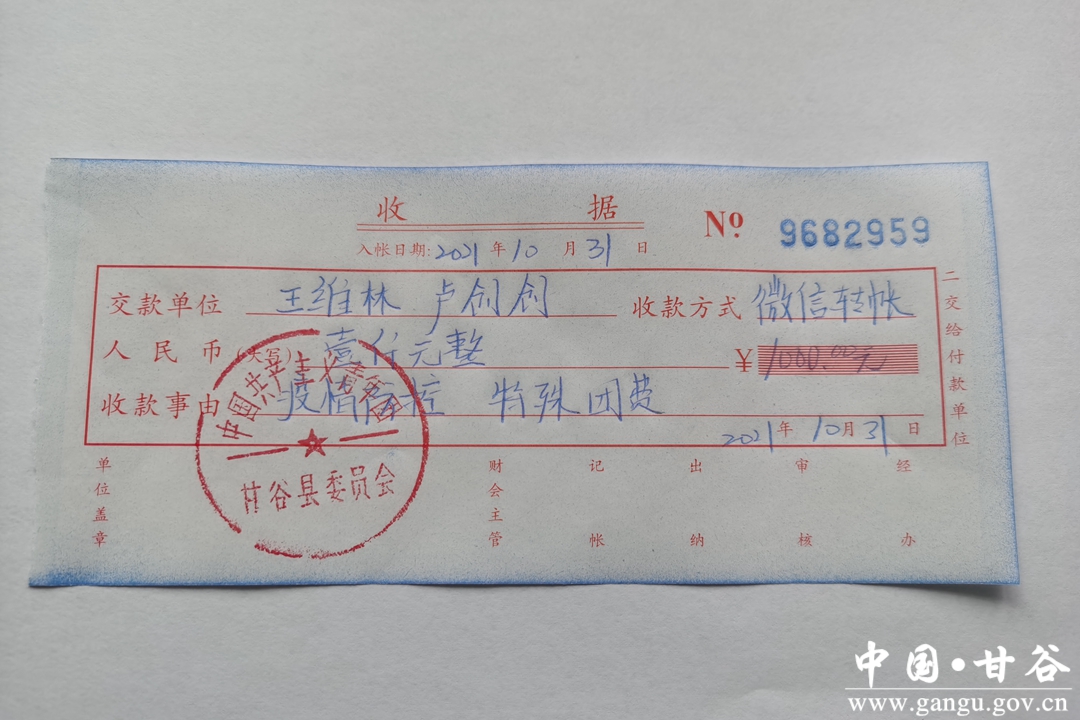 收 据
№ 9682959
入帐日期:2021年10月31日
交款单位 王维林 卢创创 收款方式 微信转帐
人民币(大写) 壹仟元整 ¥1000.00元
收款事由 疫情防控 特殊团费
2021年10月31日
二交给付款单位
中国共产主义青年团
甘谷县委员会
单位盖章 财会主管 记帐 出纳 审核 经办
中国·甘谷
www.gangu.gov.cn